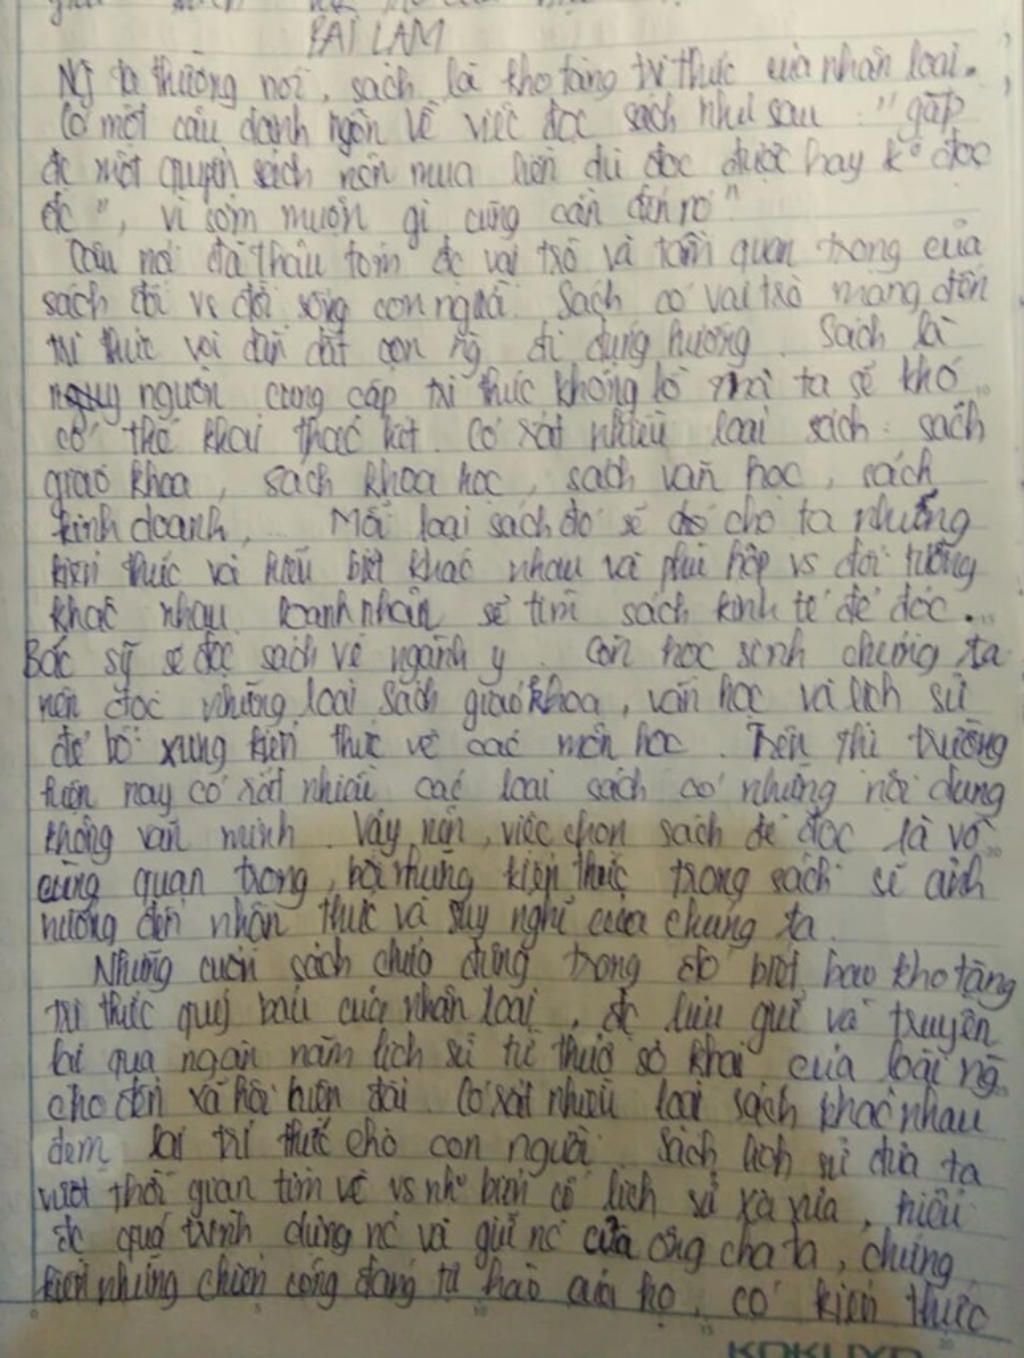 BÀI LÀM
Ng ta thường nói, sách là kho tàng tri thức của nhân loại.
Có một câu danh ngôn về việc đọc sách như sau : "gặp
đc một quyển sách nên mua liền dù đọc được hay ko đọc
đc", vì sớm muộn gì cũng cần đến nó"
Câu nói đã thâu tóm đc vai trò và tầm quan trong của
sách đối vs đời sống con người. Sách có vai trò mang đến
tri thức và dẫn dắt con ng đi đúng hướng. Sách là
nguồn cung cấp tri thức khổng lồ mà ta sẽ khó
có thể khai thác hết. Có rất nhiều loại sách : sách
giáo khoa, sách khoa học, sách văn học, sách
kinh doanh,... Mỗi loại sách đó sẽ cho ta những
kiến thức và hiểu biết khác nhau và phù hợp vs đối tượng
khác nhau. Doanh nhân sẽ tìm sách kinh tế để đọc...
Bác sỹ sẽ đọc sách về ngành y. Còn học sinh chúng ta
nên đọc những loại sách giáo khoa, văn học và lịch sử
để bổ xung kiến thức về các môn học. Trên thị trường
hiện nay có rất nhiều các loại sách có những nội dung
không văn minh. Vậy nên, việc chọn sách để đọc là vô
cùng quan trọng, bởi những kiến thức trong sách sẽ ảnh
hưởng đến nhận thức và suy nghĩ của chúng ta.
Những cuốn sách chứa đựng trong đó biết bao kho tàng
tri thức quý báu của nhân loại, đc lưu giữ và truyền
lại qua ngàn năm lịch sử từ thuở sơ khai của loài ng
cho đến xã hội hiện đại. Có rất nhiều loại sách khác nhau
đem lại tri thức cho con người. Sách lịch sử đưa ta
vượt thời gian tìm về vs nh biến cố lịch sử xa xưa, hiểu
đc quá trình dựng nc và giữ nc của ông cha ta, chứng
kiến những chiến công đáng tự hào của họ, có kiến thức
KOKUYO